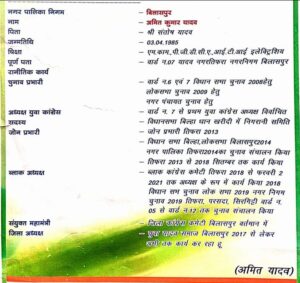 नगर पालिका निगम - बिलासपुर
नाम - अमित कुमार यादव
पिता - श्री संतोष यादव
जन्मतिथि - 03.04.1985
शिक्षा - एम.काम,पी.जी.डी.सी.ए,आई.टी.आई इलेक्ट्रिशिय
पूर्ण पता - वार्ड न.07 यादव नगरतिफरा नगरनिगम बिलासपुर
रानीतिक कार्य
चुनाव प्रभारी - वार्ड न.6 एवं 7 विधान सभा चुनाव 2008हेतु
लोकसभा चुनाव 2009 हेतु
नगर पंचायत चुनाव हेतु
अध्यक्ष युवा कांग्रेस - वार्ड न. 7 से प्रथम युवा कांग्रेस अध्यक्ष निर्वाचित
सदस्य - विधानसभा बिल्हा धान खरीदी में निगरानी समिति
जोन प्रभारी - जोन प्रभारी तिफरा 2013
- विधान सभा बिल्हा,लोकसभा बिलासपुर2014
नगर पालिका तिफरा2014का चुनाव संचालन किया
- तिफरा 2013 से 2018 सितम्बर तक कार्य किया
ब्लाक अध्यक्ष - ब्लाक कांग्रेस कमेटी तिफरा 2018 से फरवरी 2
2021 तक अध्यक्ष के रूप में कार्य किया 2018
विधान सभ चुनाव लोक सभा 2019 नगर निगम
चुनाव 2019 तिफरा, परसदा, सिरगिट्टी वार्ड न.
05 से वार्ड न.12 तक चुनाव संचालन किया
संयुक्त महामंत्री - जिला कांग्रेस कमेटी बिलासपुर वर्तमान में
जिला अध्यक्ष - युवा यादव समाज बिलासपुर 2017 से लेकर
अभी तक कार्य कर रहा हू
(अमित यादव)